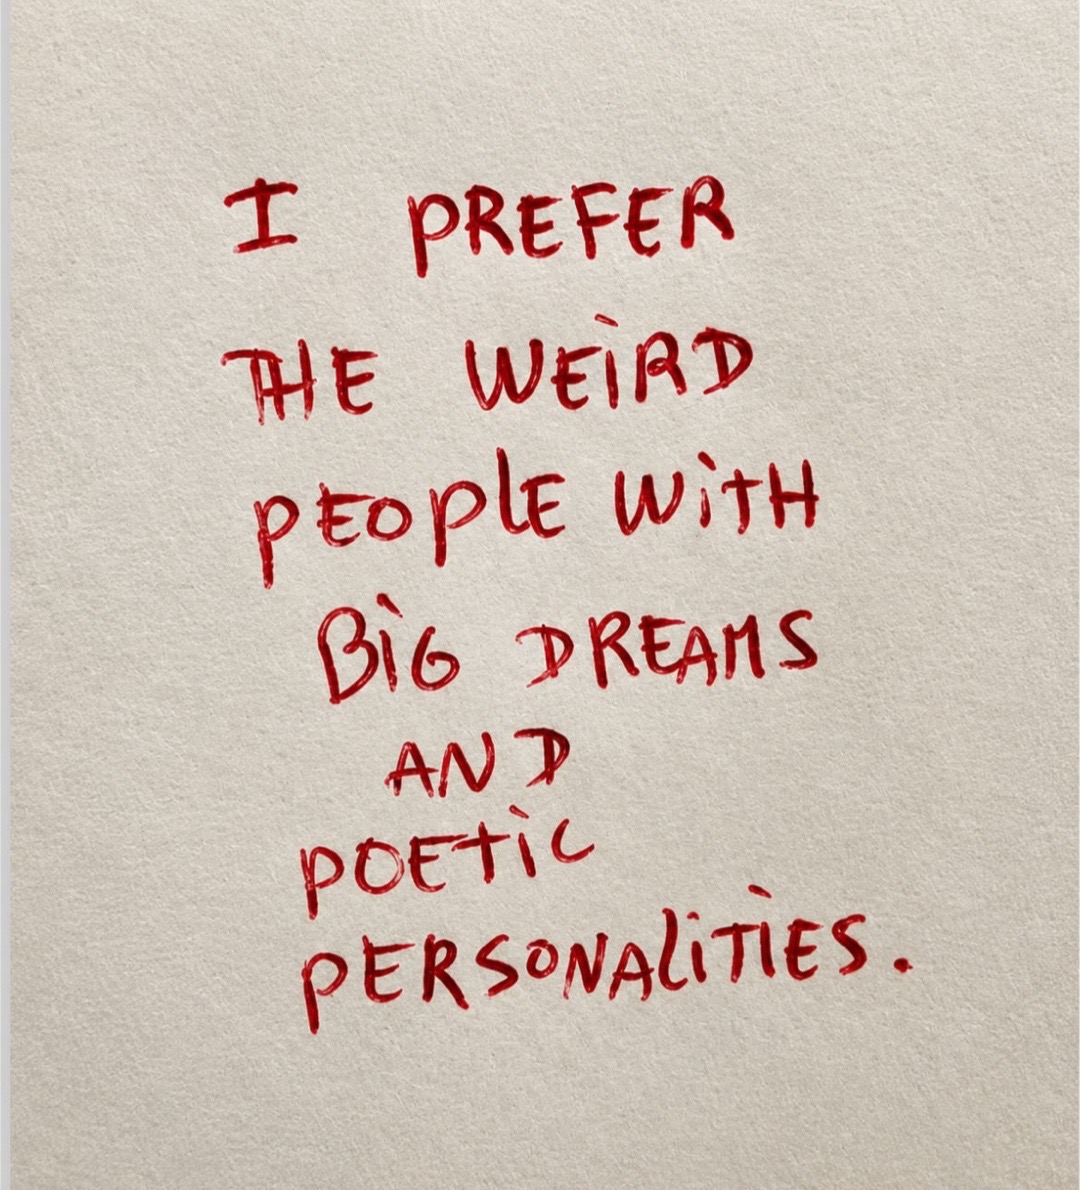 I PREFER
THE WEiRD
PEOPlE WiTH
BiG DREAMS
AND
POETiC
PERSONALiTiES.